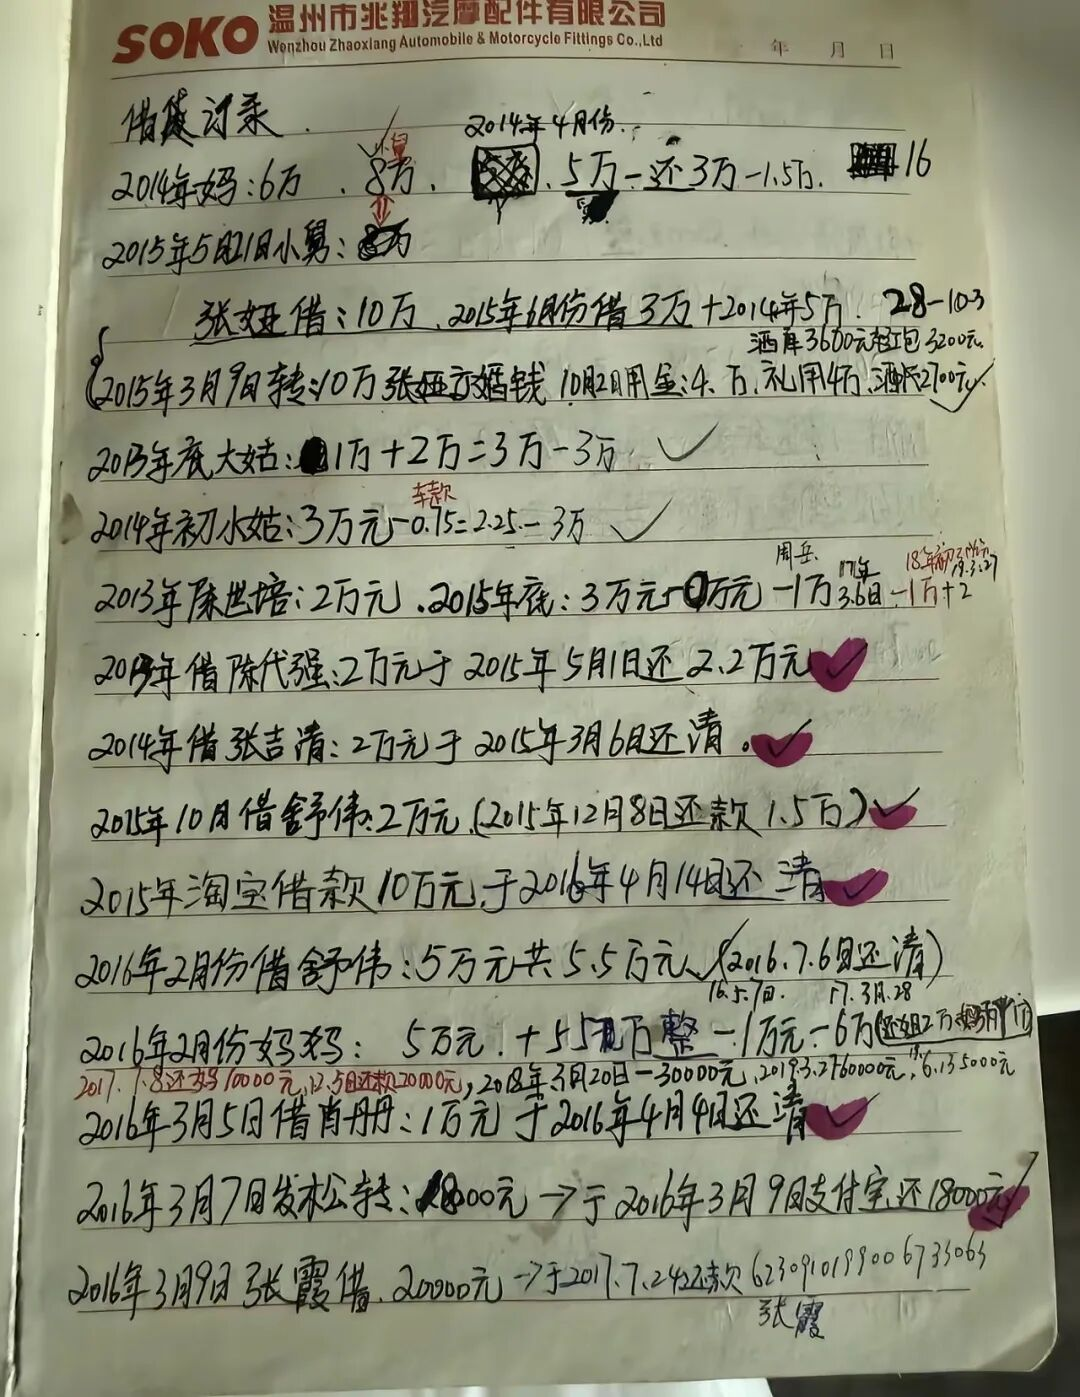 SOKO 温州市兆翔汽摩配件有限公司
Wenzhou Zhaoxiang Automobile & Motorcycle Fittings Co.,Ltd
年 月 日
借贷记录
2014年4月份
2014年妈:6万 . 8万 . 5万-还3万-1.5万. 16
2015年5月21日小舅:
张娅借:10万 . 2015年6月份借3万+2014年5万. 28-10-3
酒席3600元 红包3200元
2015年3月9日转:10万张娅 婚钱 10月2日用金:4.万、礼用4万, 2700元
2013年底大姑: 1万+2万=3万-3万
车款
2014年初小姑:3万元-0.75=2.25-3万
周岳 17年 18年初
2013年陈世培:2万元 . 2015年底:3万元- 万元-1万 3.6日 -1万+2
2013年借陈代强:2万元于2015年5月1日还2.2万元
2014年借张吉清:2万元于2015年3月6日还清.
2015年10月借舒伟:2万元.(2015年12月8日还款1.5万)
2015年淘宝借款10万元,于2016年4月14日还清
2016年2月份借舒伟:5万元共5.5万元、(2016.7.6日还清)
16.5.7日. 17.3月.28
2016年2月份妈妈: 5万元.+5 万整-1万元-6万(还姐2万
2017.7.8还妈10000元,12.5日还款20000元,2018年3月20日-30000元,2019.3.27 60000元, 6.13 5000元
2016年3月5日借肖丹丹:1万元于2016年4月4日还清
2016年3月7日发松转: 8000元→于2016年3月9日支付宝还18000元
2016年3月9日张霞借.20000元→于2017.7.24还款 6230910199006733063
张霞